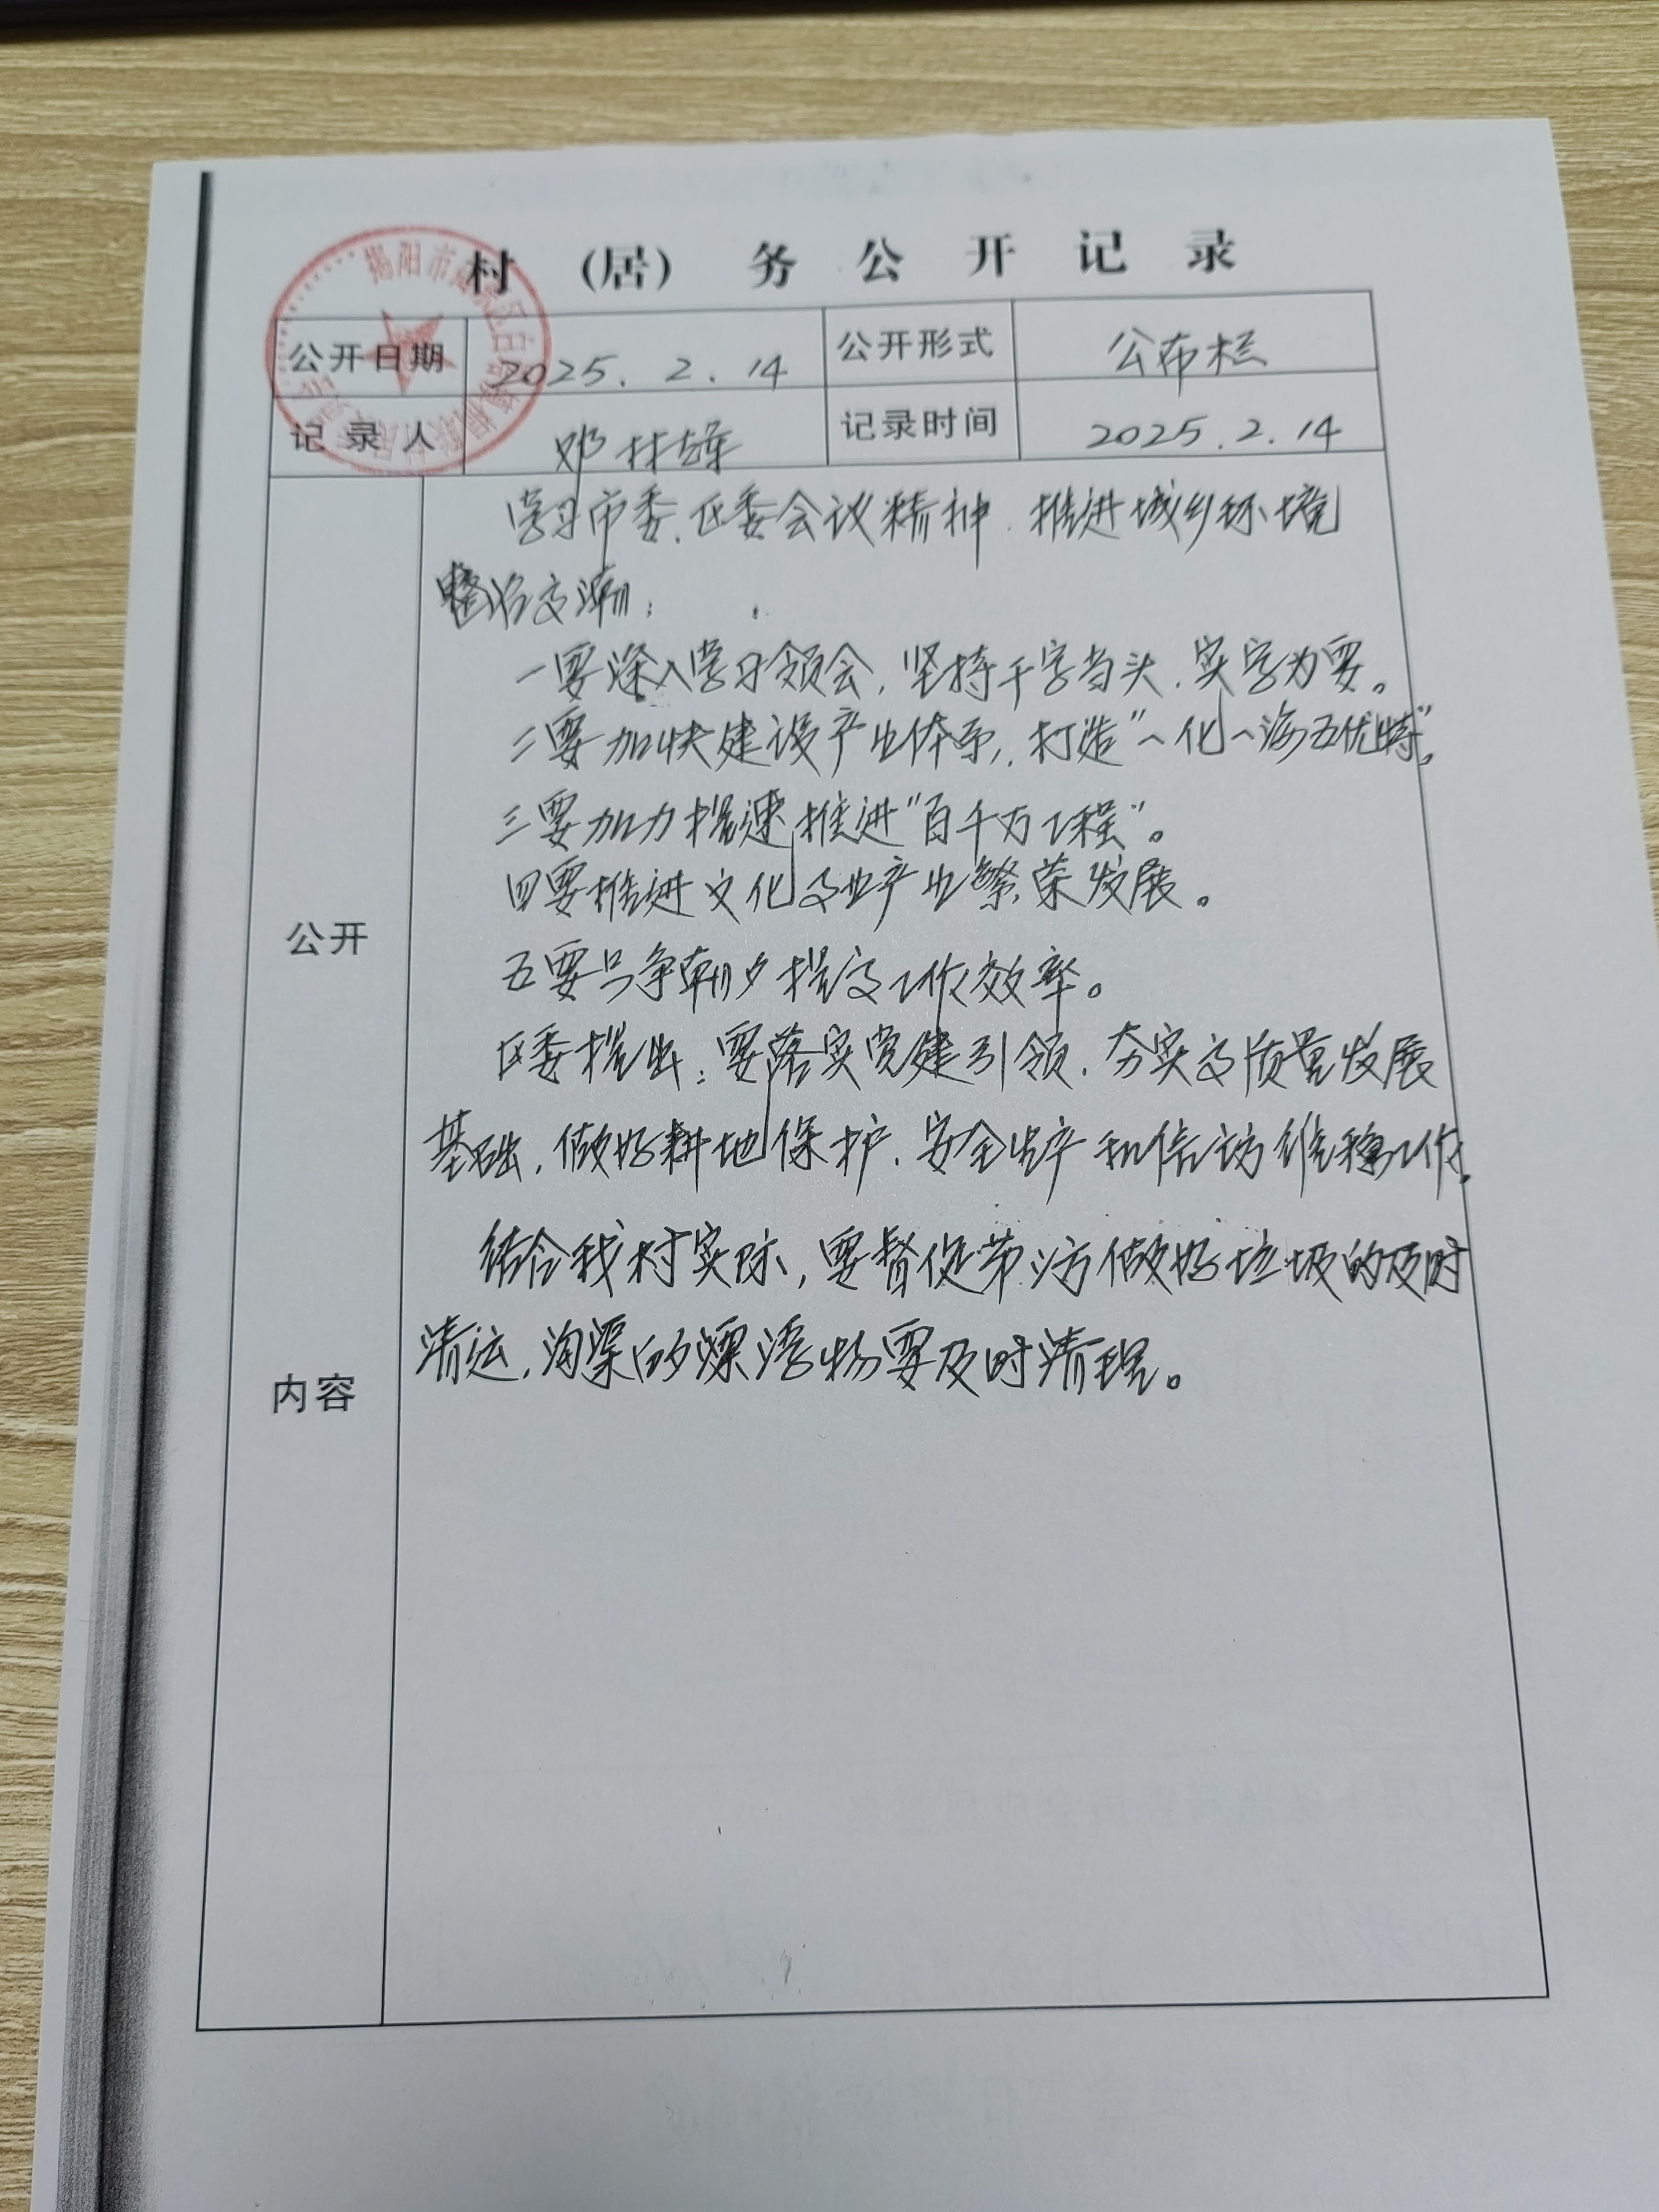 村（居）务公开记录
公开日期 2025.2.14 公开形式 公布栏
记录人 邓林雄 记录时间 2025.2.14
学习市委、区委会议精神、推进城乡环境
整治高潮：
一要深入学习领会，坚持干字当头、实字为要。
二要加快建设产业体系，打造“一化一海五优特”。
三要加力提速推进“百千万工程”。
四要推进文化产业繁荣发展。
五要只争朝夕提高工作效率。
区委提出：要落实党建引领、夯实高质量发展
基础，做好耕地保护、安全生产和信访维稳工作。
结合我村实际，要督促做好垃圾的及时
清运，沟渠的漂浮物要及时清理。
公开
内容
揭阳市